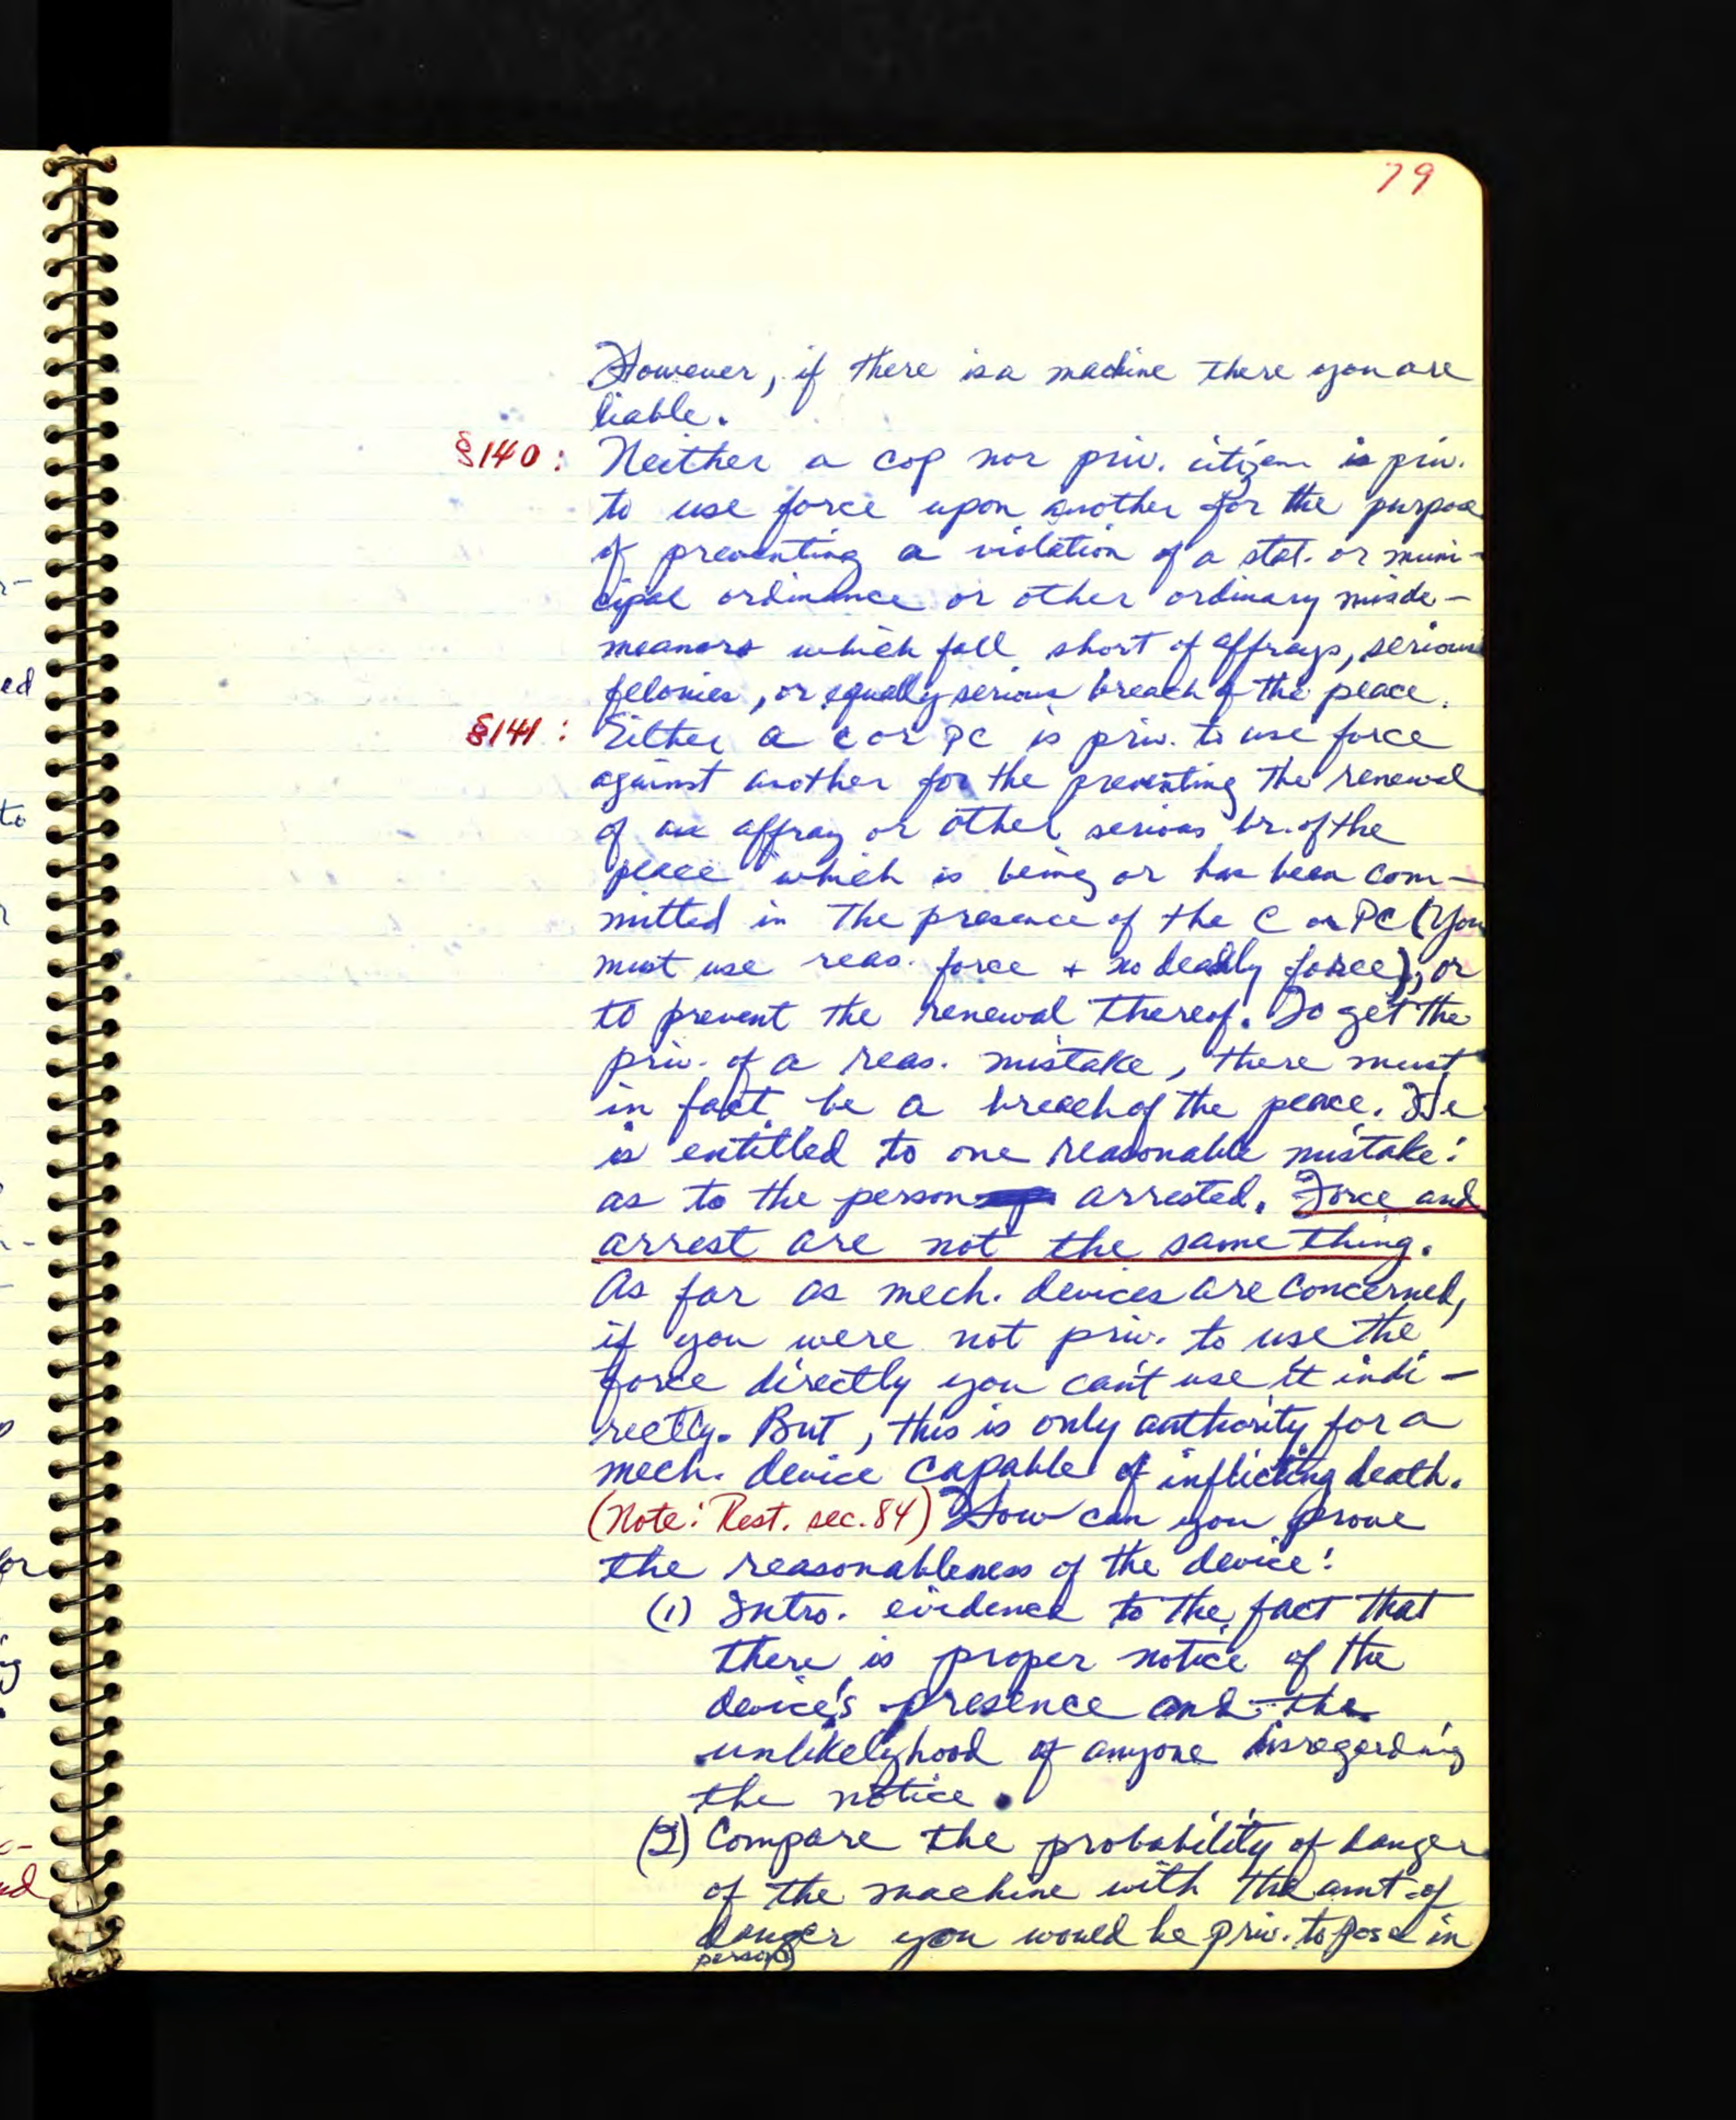 79
However, if there is a machine there you are
liable.
§140: Neither a cop nor priv. citizen is priv.
to use force upon another for the purpose
of preventing a violation of a stat. or muni-
cipal ordinance or other ordinary misde-
meanors which fall short of affrays, serious
felonies, or equally serious breach of the peace.
§141: Either a C or PC is priv. to use force
against another for the preventing the renewal
of an affray or other serious br. of the
peace which is being or has been com-
mitted in the presence of the C or PC (You
must use reas. force + no deadly force), or
to prevent the renewal thereof. To get the
priv. of a reas. mistake, there must
in fact be a breach of the peace. He
is entitled to one reasonable mistake:
as to the person arrested. Force and
arrest are not the same thing.
As far as mech. devices are concerned,
if you were not priv. to use the
force directly you can't use it indi-
rectly. But, this is only authority for a
mech. device capable of inflicting death.
(Note: Rest. sec. 84) How can you prove
the reasonableness of the device:
(1) Intro. evidence to the fact that
there is proper notice of the
device's presence and the
unlikelyhood of anyone disregarding
the notice.
(2) Compare the probability of danger
of the machine with the amt. of
danger you would be priv. to pose in
person